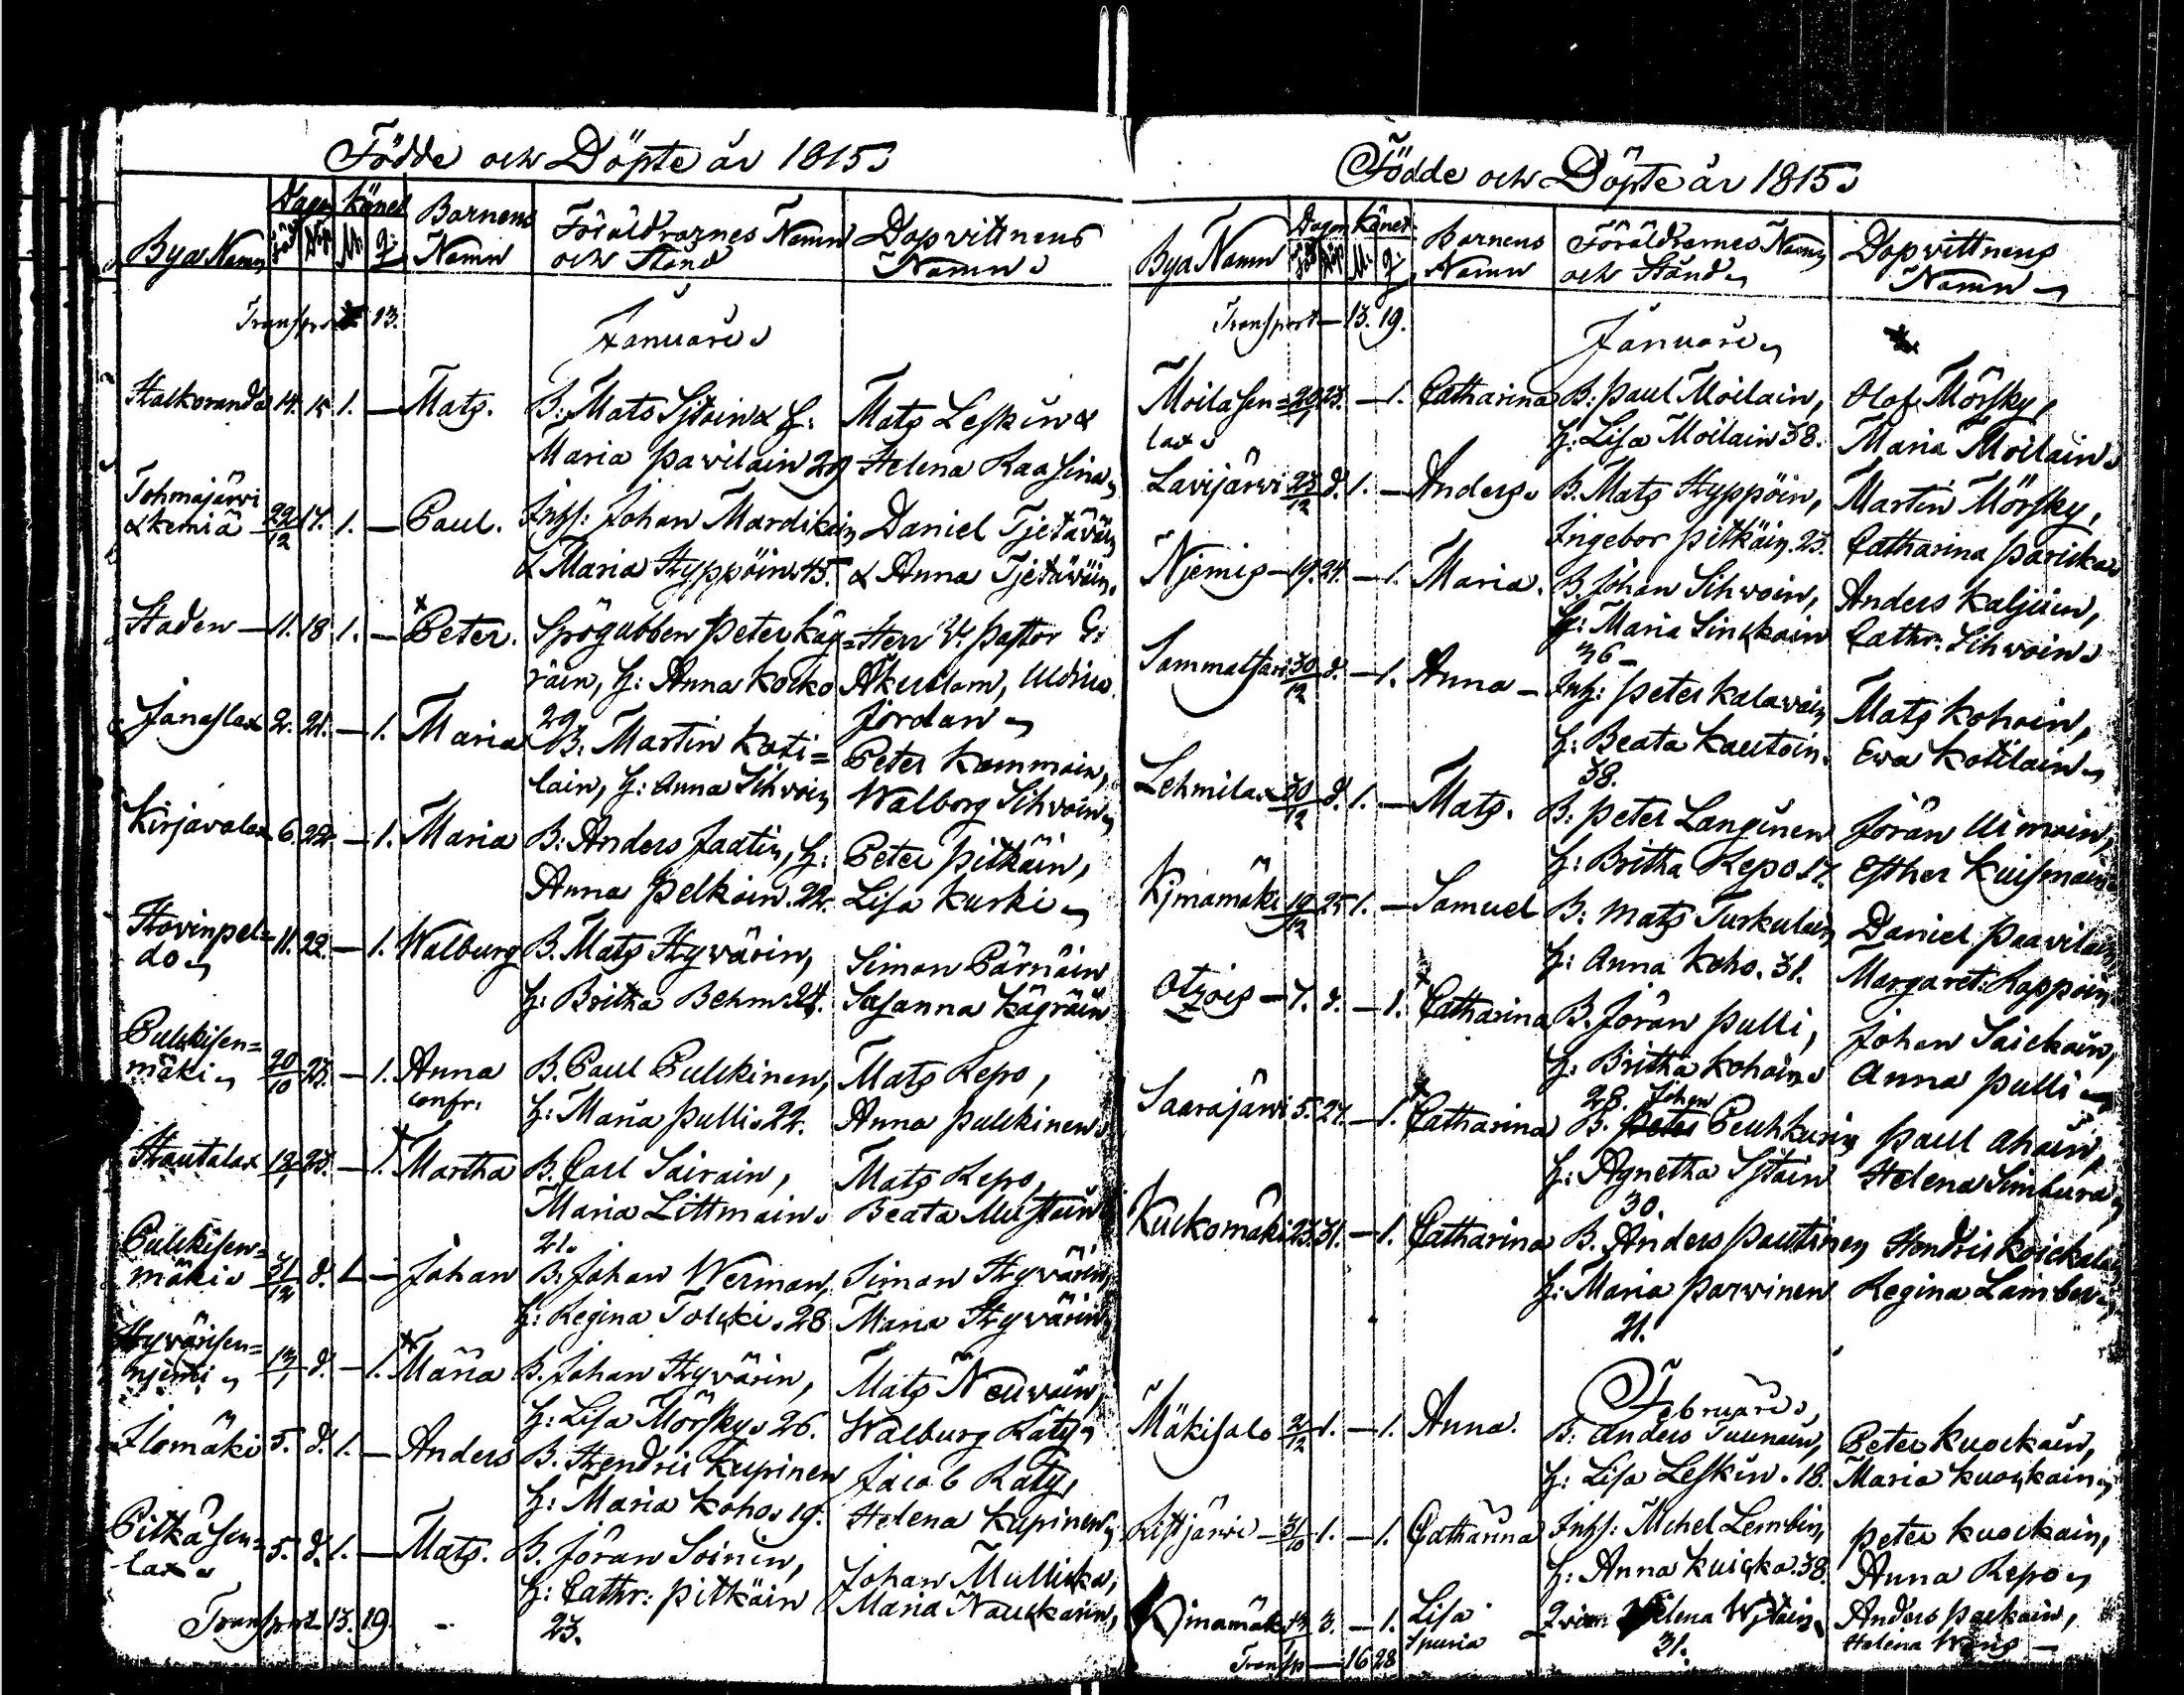 Födde och Döpte år 1815
Bya Namn
Dagen
Född
Döp
Könet
M:
Q:
Barnens
Namn
Föräldrarnes Namn
och Stånd
Dopvittnens
Namn
Transport 13.
Januari
14. 15 1. — Mats.
B: Mats Sistoin & H:
Maria Pavilain 29
Mats Leskin &
Helena Raasina
Tohmajärvi
& Kemiä 22/12 17. 1. — Paul.
Inhs: Johan Mardikain
& Maria Hyppöin 45.
Daniel Tjetäväin
& Anna Tjetäväin.
Staden — 11. 18 1. — Peter.
Peter Käg=
räin, H: Anna Kocko
29
Herr V. Pastor G:
Jordan
Janaslax 2. 21. — 1. Maria
B. Martin Koti=
lain, H: Anna Sihvoin
Peter Kammoin,
Walborg Sihvoin
Kirjavalax 6. 22. — 1. Maria
B: Anders Jaatin, H:
Anna Pelkoin. 22.
Peter Pitkäin,
Lisa Kurki
Hovinpel=
do 11. 22. — 1. Walburg
B. Mats Hyvärin,
H: Britha Behm 24.
Simon Pärnäin
Susanna Kägräin
Pulckisen=
mäki 20/10 23. — 1. Anna
confr.
B. Paul Pulckinen,
H: Maria Pulli 22.
Mats Repo,
Anna Pulckinen
Hautalax 12/1 23. — 1. Martha
B. Carl Sairain,
Maria Littmain
21.
Mats Repo,
Beata Mustoin
Pulckisen=
mäki 31/12 d. 1. — Johan
B: Johan Werman,
H: Regina Tolcki. 28
Simon Hyvärin,
Maria Hyvärin
Hyvärisen=
njemi 13/1 d. — 1. Maria
B. Johan Hyvärin,
H: Lisa Mörsky 26.
Mats Neuvoin,
Walburg Räty
Ilomäki 5. d. 1. — Anders
B. Hendric Kupinen
H: Maria Koho 19.
Jacob Räty,
Helena Kupinen
Pitkäsen=
lax 5. d. 1. — Mats.
B. Jöran Soinin,
H: Cathr: Pitkäin
23.
Johan Mullicka,
Maria Nauckarin,
Transport 13. 19.
Födde och Döpte år 1815
Bya Namn
Dagen
Född
Döp
Könet
M:
Q:
Barnens
Namn
Föräldrarnes Namn
och Stånd
Dopvittnens
Namn
Transport — 13. 19.
Januari
Moilasen=
lax 23. — 1. Catharina
B: Paul Moilain,
H: Lisa Moilain 38.
Olof Mörsky,
Maria Moilain
Lavijärvi 23/12 d. 1. — Anders
B. Mats Hyppöin,
Ingebor Pitkäin. 23.
Martin Mörsky,
Catharina Paricka
Njemis — 19. 24. — 1. Maria.
B. Johan Sihvoin,
H: Maria Sinckoin
36
Anders Kaljuin,
Cathr: Sihvoin
30/12 d. — 1. Anna
Inh: Peter Kalavain
H: Beata Kautoin.
38.
Mats Kohoin,
Ewa Kotilain
Lehmilax 30/12 d. 1. — Mats.
B: Peter Langinen
H: Britha Repo 17.
Jöran Uimoin,
Esther Kuismain
Kjmamäki 19/12 25 1. — Samuel
B: Mats Turkulain
H: Anna Koho. 31.
Daniel Paavilain,
Margaret: Rappoin
Otzois — 7. d. — 1. Catharina
B. Jöran Pulli,
H: Britha Kohoin
28.
Johan Saickoin,
Anna Pulli
Saarajärvi 5. 27. — 1. Catharina
Johan
B. Peter Peuhkurin
H: Agnetha Sistoin
30.
Paul Ahoin,
Helena Simbura
Kuckomäki 23. 31. — 1. Catharina
B. Anders Pautinen
H: Maria Parvinen
21.
Hendric Koickalain
Regina Laimber
Februari
Mäkisalo 2/12 1. — 1. Anna.
B: Anders Tuunain,
H: Lisa Leskin. 18.
Peter Kuockain,
Maria Kuockain
Ristjärvi — 31/10 1. — 1. Catharina
Inhs: Michel Lembin,
H: Anna Kuicka. 38.
Peter Kuockain,
Anna Repo
Kjmamäki 3. — 1. Lisa
Spuria
31.
Anders Packain,
Helena
Transp — 16 28